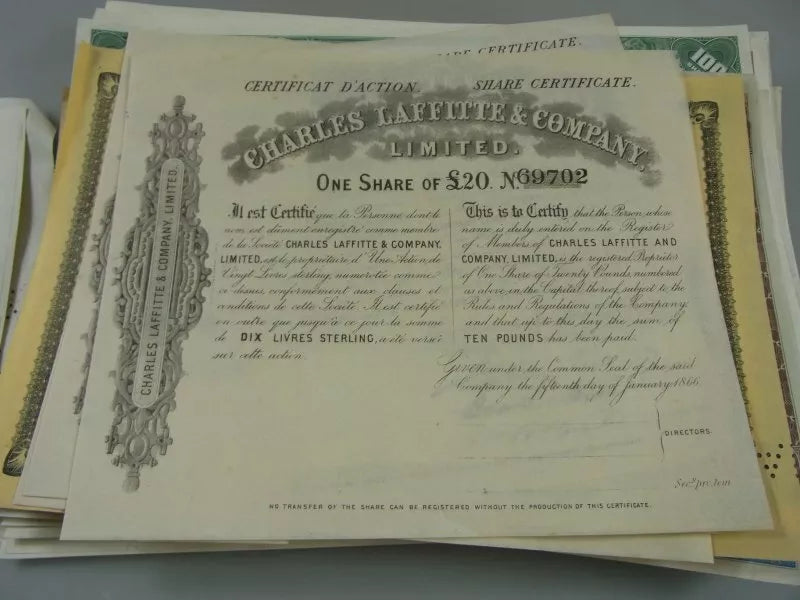 ARE CERTIFICATE.
100
CERTIFICAT D'ACTION. SHARE CERTIFICATE.
CHARLES LAFFITTE & COMPANY,
LIMITED.
ONE SHARE OF £20. No. 69702
Il est Certifié que la Personne dont le
nom est dûment enregistré comme membre
de la Société CHARLES LAFFITTE & COMPANY,
LIMITED, est le propriétaire d'Une Action de
Vingt Livres sterling, numérotée comme
ci dessus, conformément aux clauses et
conditions de cette Société. Il est certifié
en outre que jusqu'à ce jour la somme
de DIX LIVRES STERLING, a été versée
sur cette action.
This is to Certify that the Person, whose
name is duly entered on the Register
of Members of CHARLES LAFFITTE AND
COMPANY, LIMITED, is the registered Proprietor
of One Share of Twenty Pounds numbered
as above in the Capital thereof, subject to the
Rules and Regulations of the Company
and that up to this day the sum of
TEN POUNDS has been paid.
Given under the Common Seal of the said
Company the fifteenth day of January 1866
DIRECTORS.
Secy. pro. tem
NO TRANSFER OF THE SHARE CAN BE REGISTERED WITHOUT THE PRODUCTION OF THIS CERTIFICATE.
CHARLES LAFFITTE & COMPANY, LIMITED.